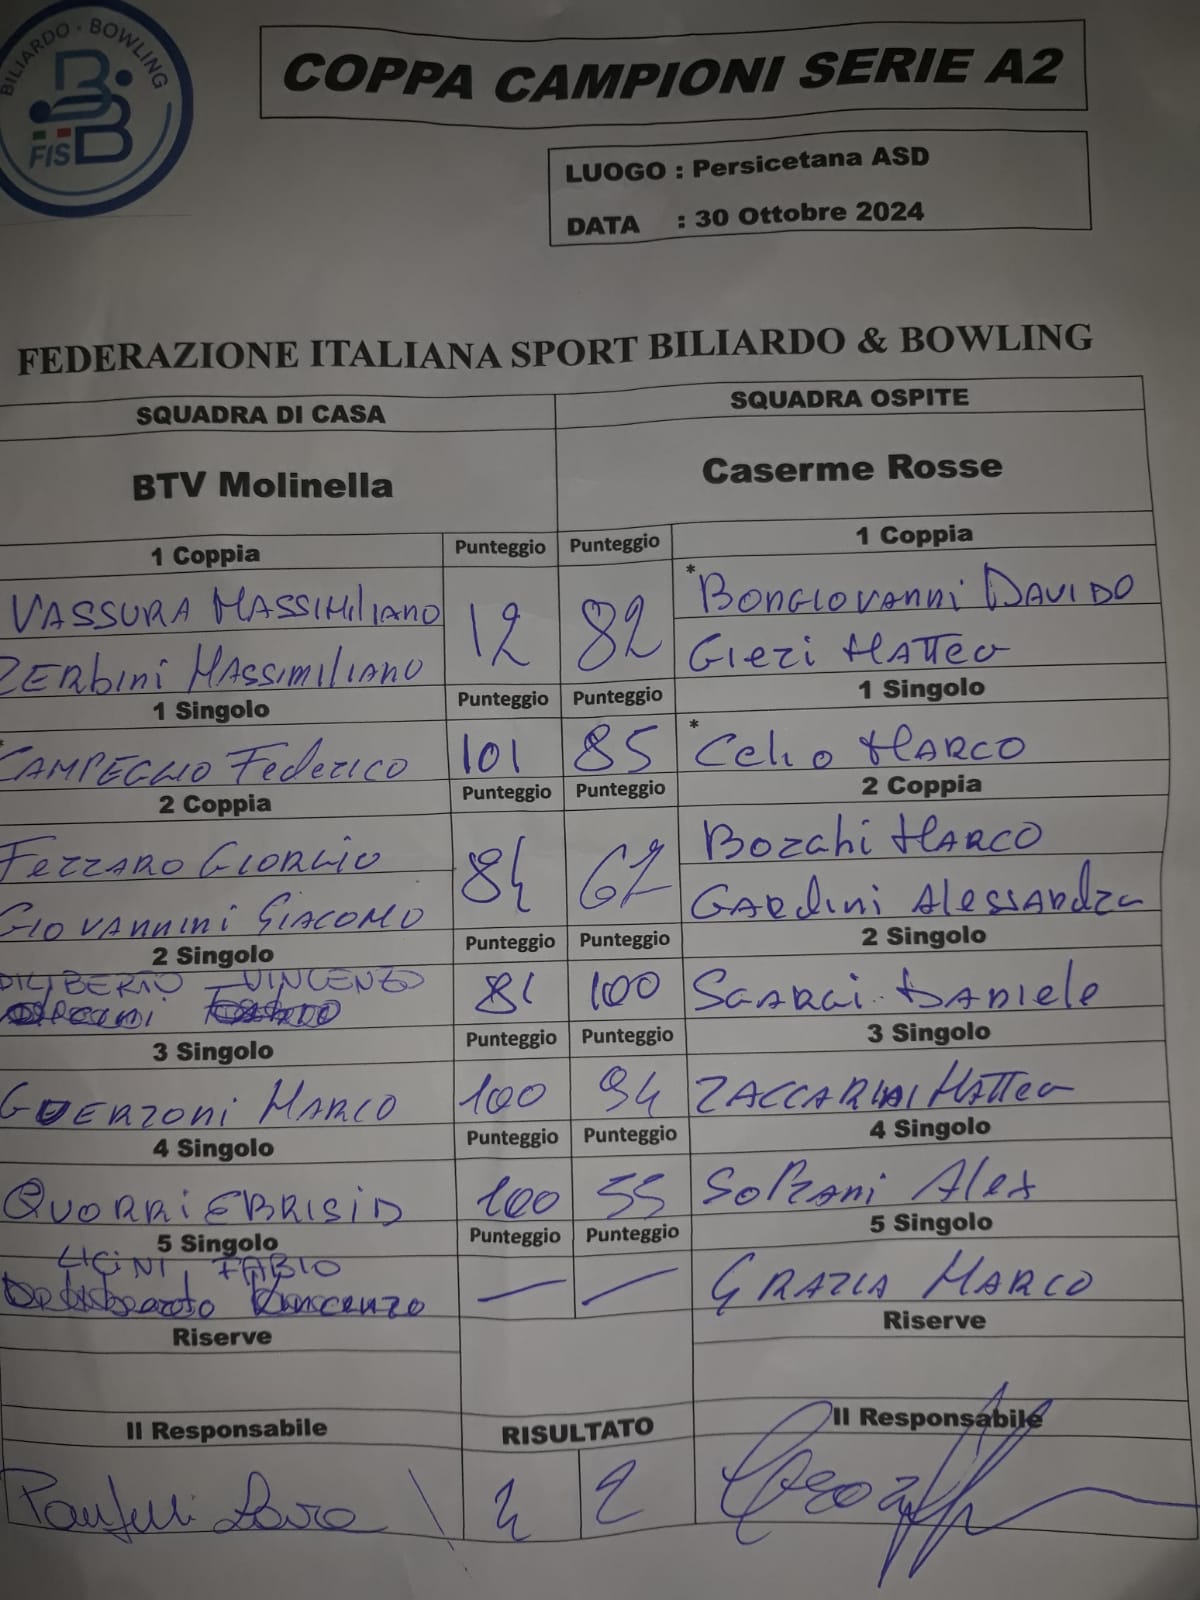 BILIARDO - BOWLING
FISBB
COPPA CAMPIONI SERIE A2
LUOGO : Persicetana ASD
DATA : 30 Ottobre 2024
FEDERAZIONE ITALIANA SPORT BILIARDO & BOWLING
SQUADRA DI CASA SQUADRA OSPITE
BTV Molinella Caserme Rosse
1 Coppia Punteggio Punteggio 1 Coppia
VASSURA MASSIMILIANO 12 82 * BONGIOVANNI DAVIDO
ZERBINI MASSIMILIANO Gieri MATTEO
1 Singolo Punteggio Punteggio 1 Singolo
* CAMPEGGIO Federico 101 85 * Celio MARCO
2 Coppia Punteggio Punteggio 2 Coppia
FERRARO GIORGIO 84 67 MARCO
GIOVANNINI GIACOMO GARdini Alessandro
2 Singolo Punteggio Punteggio 2 Singolo
DILIBERTO VINCENZO 81 100 SGARGI DANIELE
3 Singolo Punteggio Punteggio 3 Singolo
GUERZONI MARCO 100 94 ZACCARINI MATTEO
4 Singolo Punteggio Punteggio 4 Singolo
QUORRI EBRISID 100 55 Alex
5 Singolo Punteggio Punteggio 5 Singolo
LICINI FABIO — — GRAZIA MARCO
Riserve Riserve
Il Responsabile RISULTATO Il Responsabile
4 2